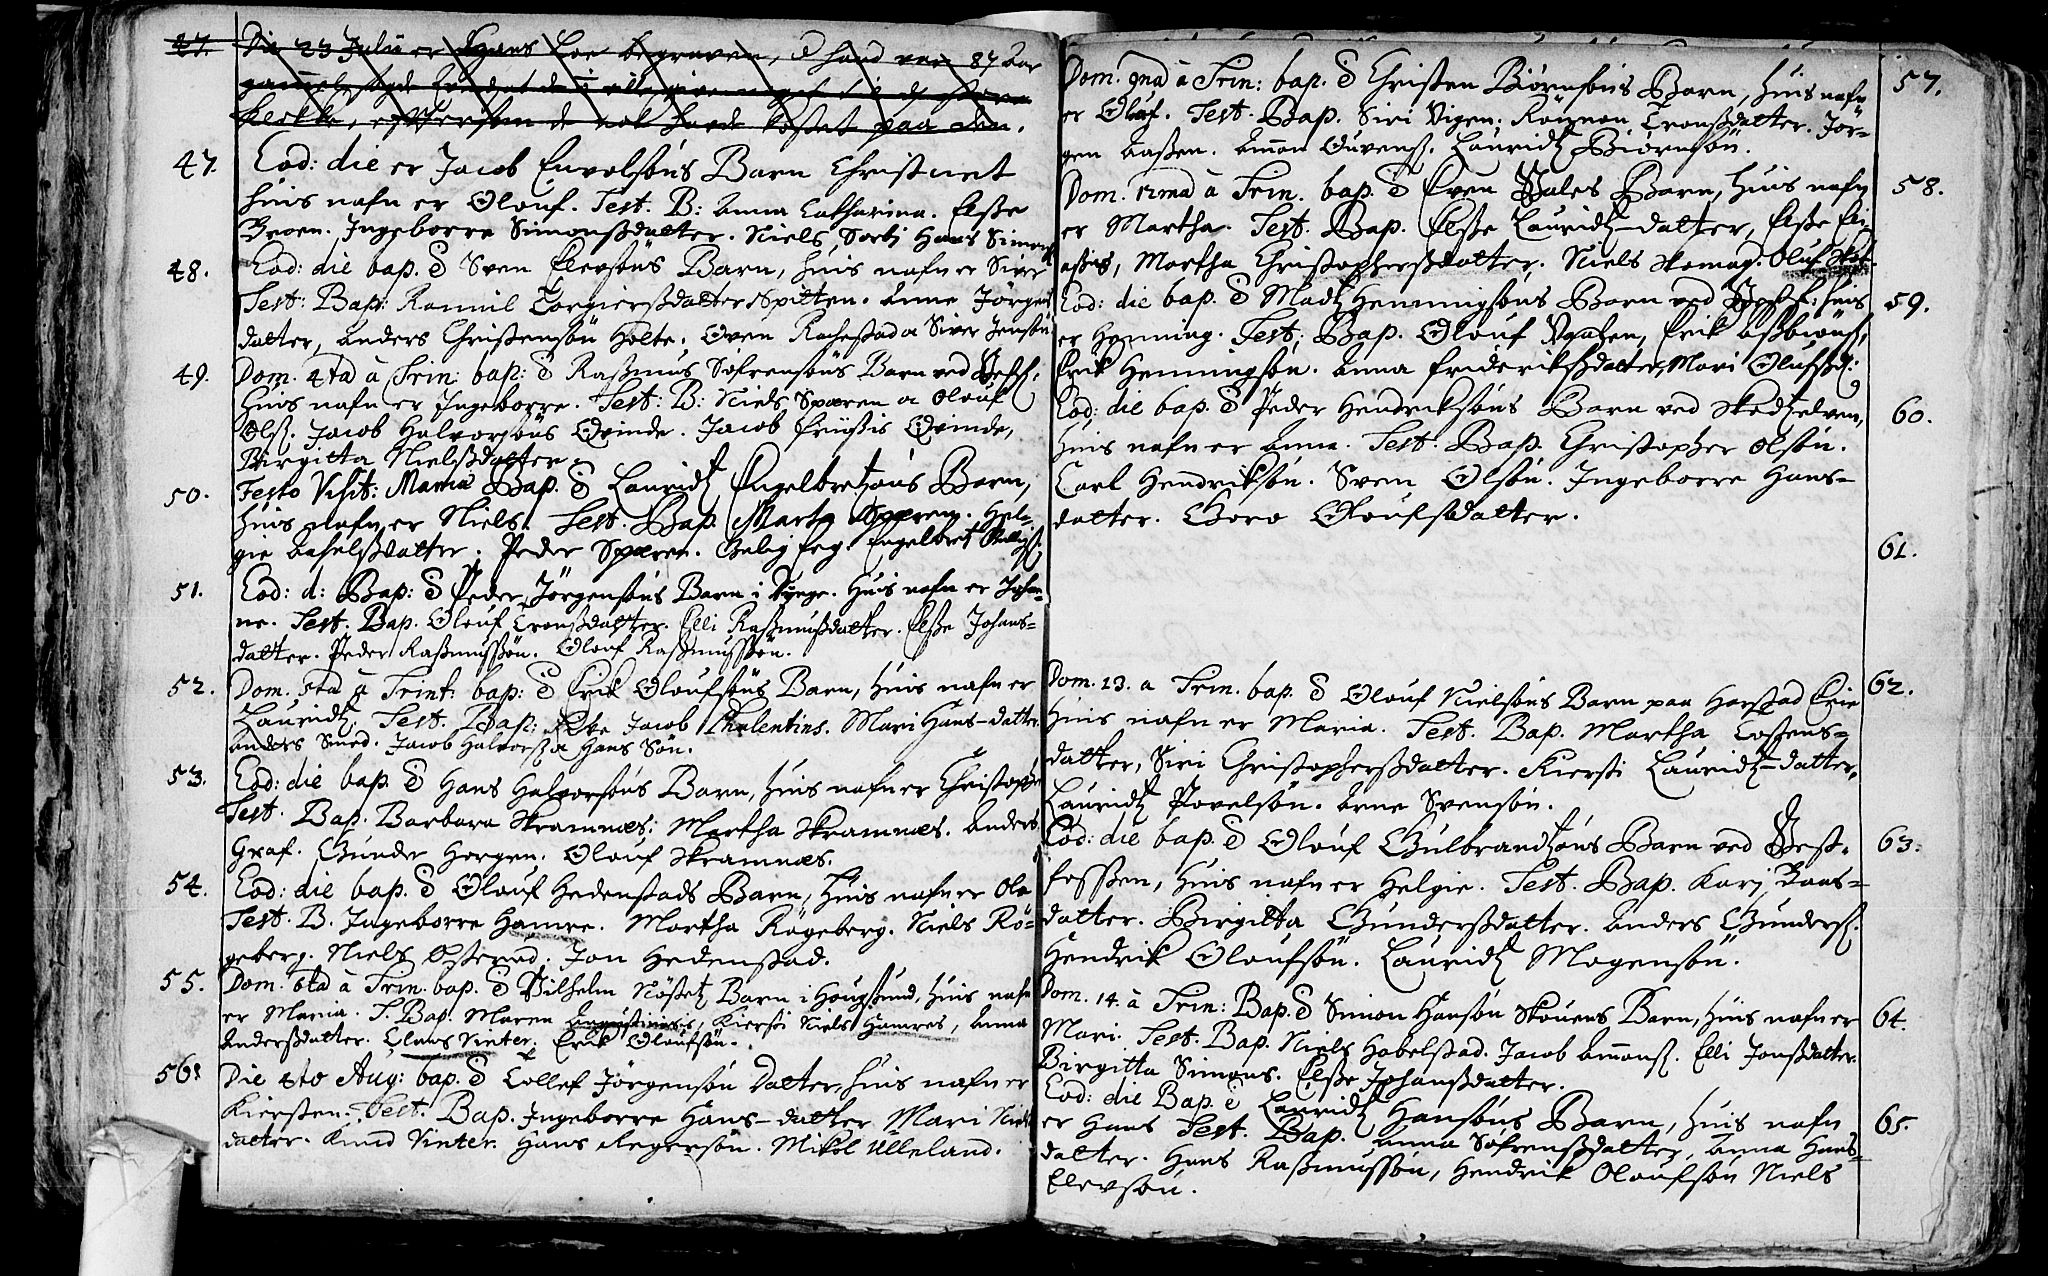 47. Die 23 Julii er Hans Loe begraven, hand var 87 aar
kircke, efftersom de nok hafde kostet paa den.
47. Eod: die er Jacob Envolsöns Barn Christnet
huis nafn er Olouf. Test. B: Anna Catharina. Elsse
Broen. Ingeborre Simonssdatter. Niels Sorbj Hans Simons
48. Eod: die bap. Sven Elevsöns Barn, huis nafn er Siver
Test: Bap: Rannil Torgierssdatter Spitten. Anne Jörgens
datter, Anders Christensön Holte. Even Rachestad & Siver Jensön
49. Dom. 4ta à Trin: bap: Rassmus Sofrensöns Barn ved Vestf.
huis nafn er Ingeborre. Test: B: Niels Sparen & Olouf
Olss. Jacob Halvorsöns Qvinde. Jacob Friissis Qvinde,
Birgitta Nielssdatter.
50. Festo Visit: Mariæ Bap. Lauridtz Engelbretzöns Barn,
huis nafn er Niels. Test. Bap. Marte Sparen. Hel-
gie Axselssdatter. Peder Sparen. Engelbret
51. Eod: d: Bap: Peder Jörgensöns Barn i Dynge. Huis nafn er Johan-
ne. Test. Bap. Olouf Tronssdatter. Elli Rassmussdatter. Elsse Johans-
datter. Peder Rassmussön. Olouf Rassmussön.
52. Dom. 5ta à Trint: bap: Erik Oloufsöns Barn, huis nafn er
Lauridtz. Test. Bap: Jacob Phalentins. Mari Hans-datter.
Anders Smed. Jacob Halvorss & Hans Sön.
53. Eod: die bap. Hans Halvorsöns Barn, huis nafn er Christopher
Test. Bap. Barbara Skramnæs. Martha Skramnæs. Anders
Graf. Gunder Horgen. Olouf Skramnæs.
54. Eod: die bap. Olouf Hedenstads Barn, huis nafn er Ole
Test. B. Ingeborre Hamre. Martha Rögeberg. Niels Rö-
geberg. Niels Osterud. Jon Hedenstad.
55. Dom. 6ta à Trin. bap. Vilhelm Nössetz Barn i Hougsund, huis nafn
er Maria. T. Bap. Maren Augustinusis, Kiersti Niels Hamres, Anna
Anderssdatter. Claus Vinter. Erik Oloufsön.
56. Die 4to Aug: bap. Tollef Jörgensön Datter, huis nafn er
Kiersten. Test. Bap. Ingeborre Hans-datter Mari Niels
datter. Knud Vinter. Hans Aegersön. Mikel Ulleland.
Dom. 9na à Trin: bap. Christen Biörnsöns Barn, huis nafn 57.
er Oluf. Test. Bap. Siri Vigen. Röignon Tronssdatter. Jör-
gen Aassen. Amon Ouvenss. Lauridtz Biörnsön.
Dom. 12ma à Trin. bap. Even Bales Barn, huis nafn 58.
er Martha. Test. Bap. Elsse Lauridtz-datter, Elsse Eli-
assis, Martha Christopherssdatter. Niels Skomag. Oluf Skot.
Eod: die bap. Madtz Henningsöns Barn ved Vestf: huis 59.
er Henning. Test: Bap. Olouf Erik Assbiönss.
Erik Henningsön. Anna Frideriksdatter, Mari Olufsd:
Eod: die bap. Peder Hendriksöns Barn ved Skodtzelven, 60.
huis nafn er Anne. Test: Bap. Christopher Olsön.
Carl Hendriksön. Sven Olsön. Ingeborre Hans-
datter. Goro Oloufsdatter.
61.
Dom. 13. a Trin. bap. Olouf Nielsöns Barn paa Harstad Eie 62.
huis nafn er Maria. Test. Bap. Martha Tostens-
datter, Siri Christopherssdatter. Kiersti Lauridtz-datter,
Lauridtz Povelsön. Arne Svensön.
Eod: die bap. Olouf Gulbrandtzöns Barn ved Vest- 63.
fossen, huis nafn er Helgie. Test. Bap. Karj Baas-
datter. Birgitta Gunderssdatter. Anders Gunderss.
Hendrik Oloufsön. Lauridtz Mogensön.
Dom. 14 à Trin: Bap. Simon Hansön Skouens Barn, huis nafn er 64.
Mari. Test. Bap. Niels Habelstad. Jacob Amonss. Elli Jonssdatter.
Birgitta Simons. Elsse Johanssdatter.
Eod: die Bap. Lauridtz Hansöns Barn, huis nafn 65.
er Hans Test. Bap. Anna Sofrenssdatter, Anna Hans-
datter. Hans Rassmussön, Hendrik Oloufsön Niels
Elevsön.